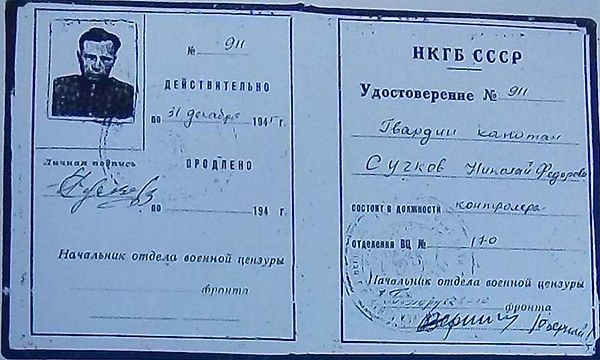 № 911
ДЕЙСТВИТЕЛЬНО
по 31 декабря 1945 г.
Личная подпись
ПРОДЛЕНО
по 194 г.
Начальник отдела военной цензуры
фронта
НКГБ СССР
Удостоверение № 911
Гвардии капитан
Сучков Николай Федоров
состоит в должности контролера
отделения ВЦ № 170
Начальник отдела военной цензуры
фронта